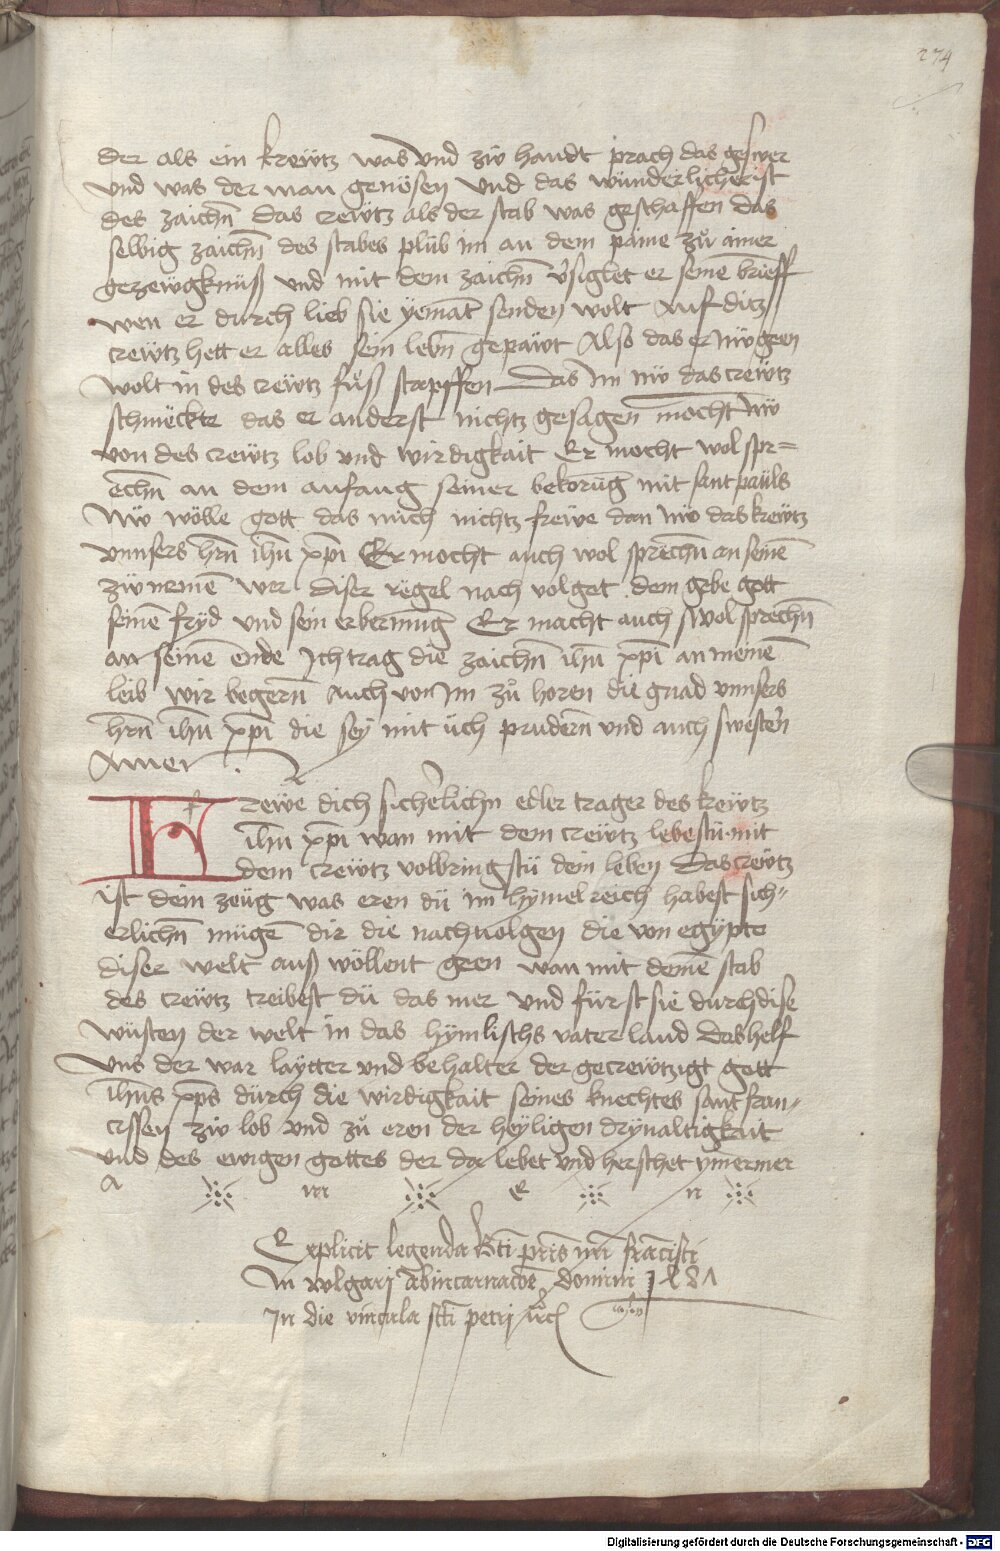 274
der als ein krewtz was und zw handt prach das geswer
und was der man genösen und das wunderlicher ist
des zaichn̄ das crewtz als der stab was geschaffen das
selbig zaichn̄ des stabes plüb im an dem paine zů ainer
gezewgknüß und mit dem zaichn̄ v̓siglet er seine brieff
wen er durch lieb sie yemāt senden wolt Auf ditz
crewtz hett er alles sein lebn̄ gepawt Also das er nw geen
wolt in des crewtz fůß stapffen Das im nw das crewtz
schmeckte das er anderst nichtz gesagen mocht nw
von des crewtz lob und wirdigkait Er mocht wol spr=
echn̄ an dem anfang seiner bekorūg mit sant pauls
Nw wölle gott das mich nichtz frewe dan nw das krewtz
vnnsers hrn̄ ihū xp̄i Er mocht auch wol sprechn̄ an seinē
zw nemē wer diser regel nach volget dem gebe gott
seinē fryd und sein erbermūg Er macht auch wol sprechn̄
an seinē ende Ich trag die zaichn̄ ihū xp̄i an meinē
leib wir begern̄ Auch von im zů horen die gnad vnnsers
hrn̄ ihū xp̄i die sey mit üch prudern̄ und auch swestern
Amen
Frewe dich sicherlichn edler trager des krewtz
ihū xp̄i wan mit dem crewtz lebestu mit
dem crewtz volbringstü dein leben Das crewtz
ist dein zeüg was eren dü im hymelreich habest sich=
erlichn̄ mügē dir die nachuolgen die von egypto
diser welt auß wöllent geen wan mit deinē stab
des crewtz treibest dü das mer und fürst sie durch dise
wüsten der welt in das hymlischs vaterland Das helf
uns der war laytter und behalter der gecrewtzigt gott
ihūs xp̄s dürch die wirdigkait seines knechtes sant fran=
cissen zw lob und zů eren der heyligen dryualtigkait
und des ewigen gottes der da lebet und herschet ymermer
A m e n
Explicit legenda Bti pr̄is nr̄i frācisci
In vulgari ab incarnacōe domini 1481
In die vincula scti petri
Digitalisierung gefördert durch die Deutsche Forschungsgemeinschaft - DFG